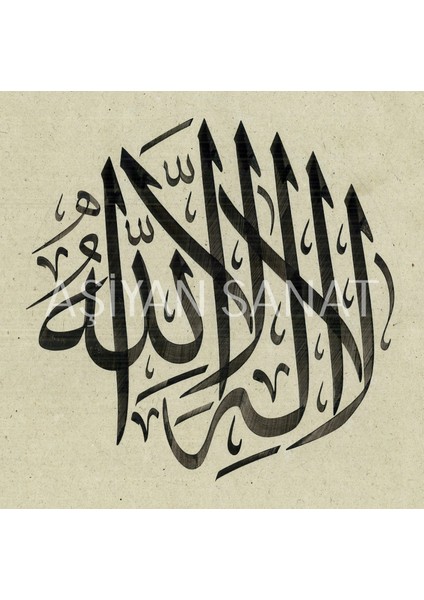 لا إله إلا الله
AŞİYAN SANAT